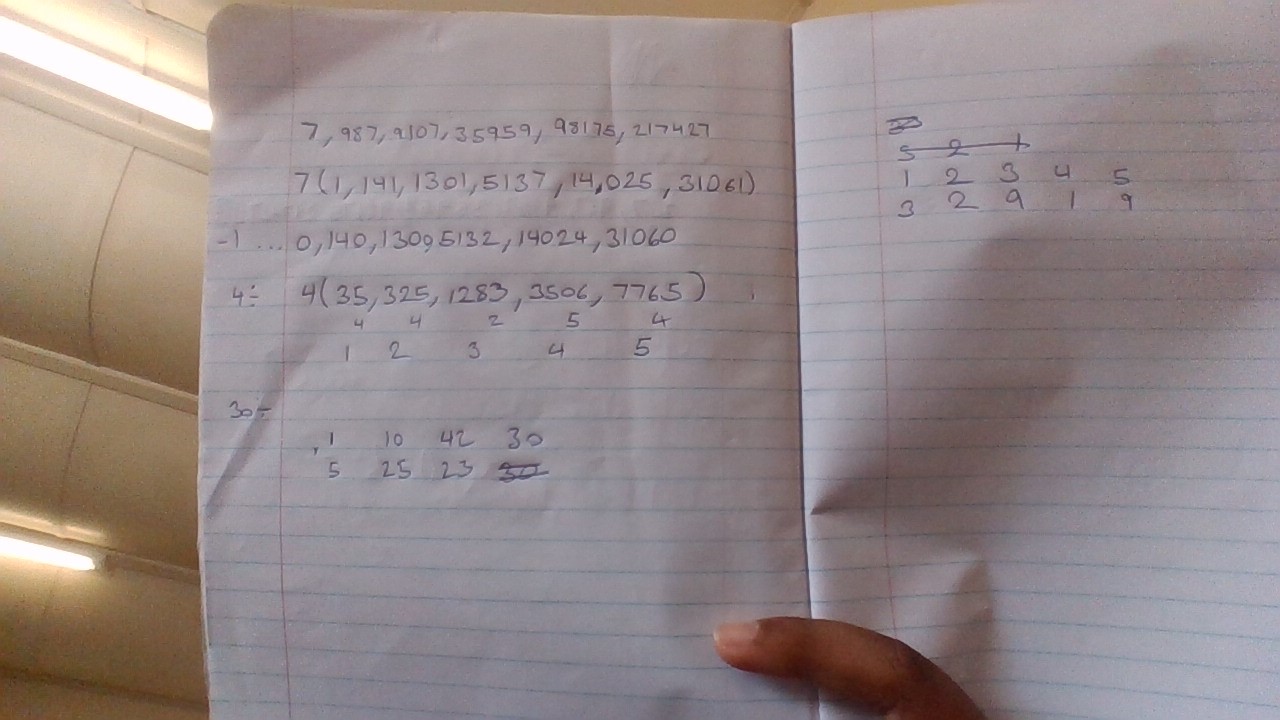 7, 987, 9107, 35959, 98175, 217427
7(1, 141, 1301, 5137, 14,025, 31061)
-1 ... 0, 140, 1300, 5132, 14024, 31060
4÷ 4(35, 325, 1283, 3506, 7765)
4 4 2 5 4
1 2 3 4 5
30÷
, 1 10 42 30
5 25 23 30
5 2 1
1 2 3 4 5
3 2 9 1 9